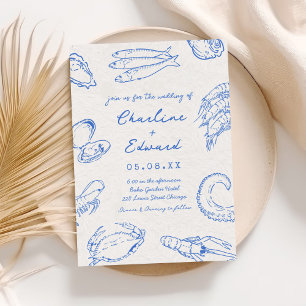 join us for the wedding of
Charline
+
Edward
05.08.XX
6:00 in the afternoon
Boho Garden Hotel
228 Lewis Street Chicago
Dinner & Dancing to follow